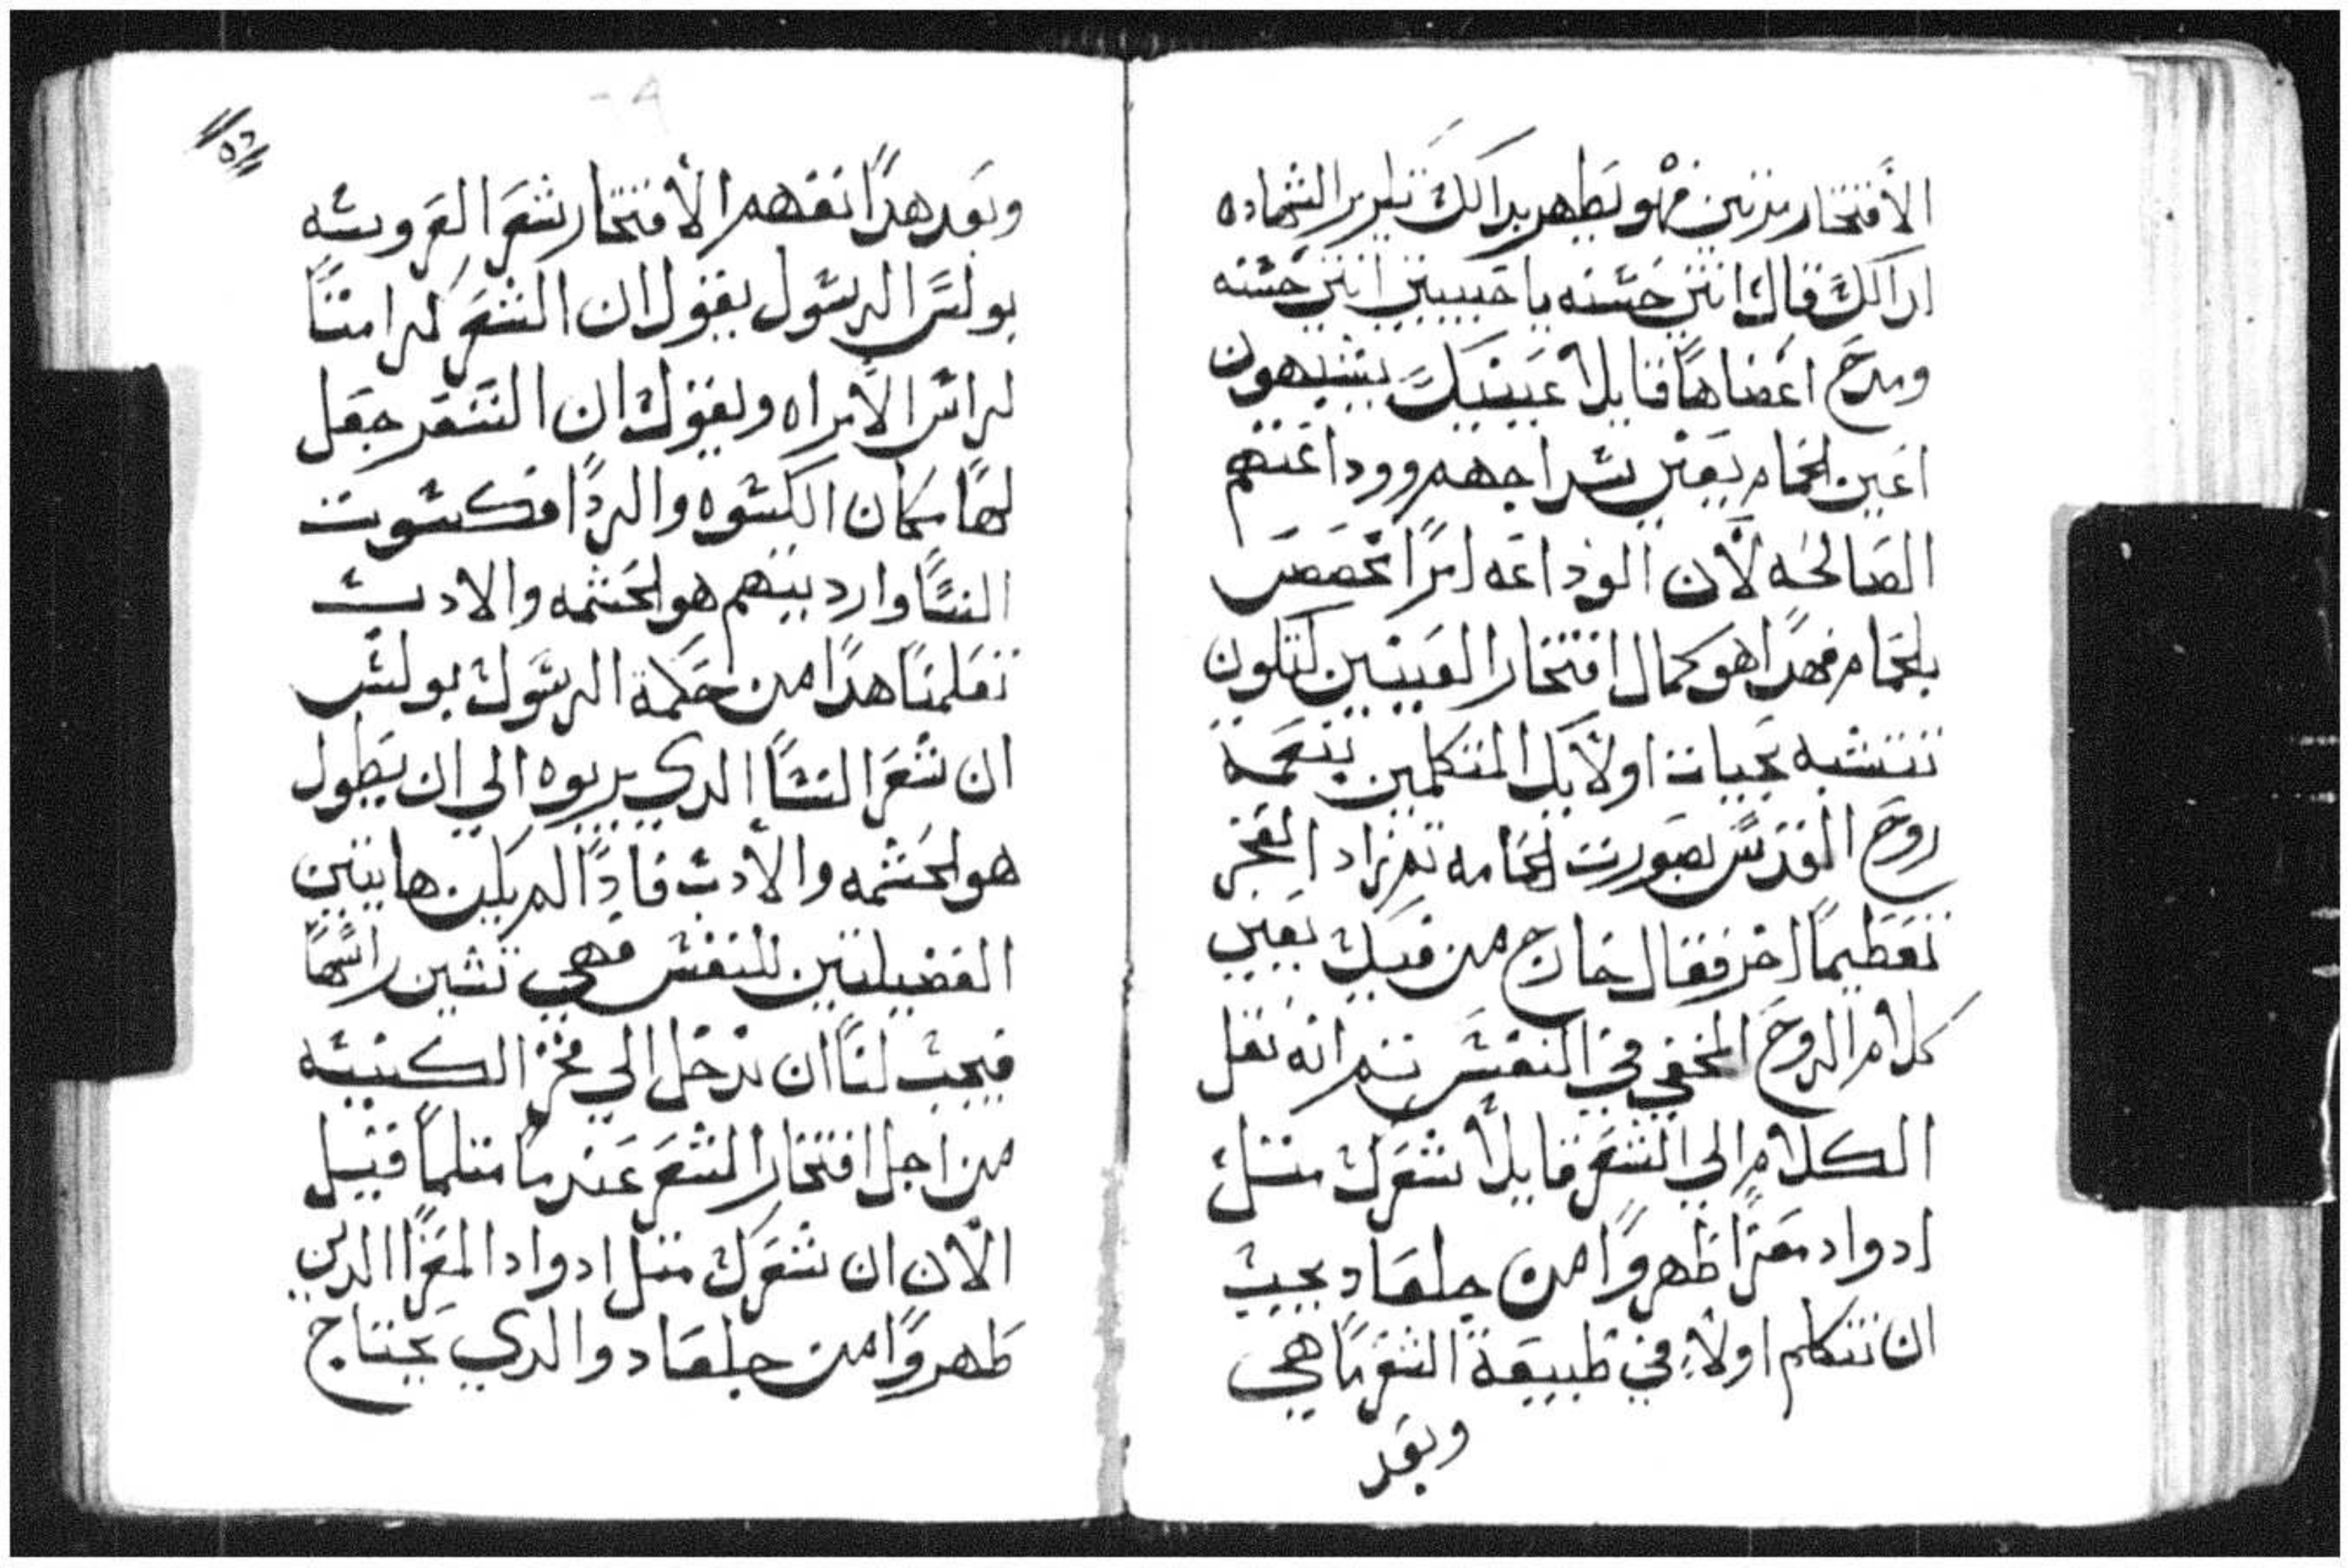 الأفتخار مرتين فهو يظهر بدالك تكرير الشهاده
ادالك قال انتي حسنه يا حبيبتي انتي حسنه
ومدح اعضاها قايلاً عينيك يشبهون
اعين الحمام يعني سداجهم ووداعتهم
الصالحه لأن الوداعه امراً تخصص
بلحمام فهدا هو كمال افتخار العينين لتكون
تتشبه بحيات اولايك المتكلمين بنعمة
روح القدس بصورت الحمامه تم زاد الفخر
تعظيماً اخر فقال خارج من فيك يعني
كلام الروح المخفي في النفس تم انه نقل
الكلام الي الشعر قايلاً شعرك متل
ادواد معزا ظهروا من جلعاد يجب
ان نتكلم اولاً في طبيعة الشعر ما هي
وبعد
٥٢
وبعد هدا نفهم الأفتخار شعر العروسه
بولس الرسول يقول ان الشعر كرامتاً
لراس الأمراه ويقول ان الشعر جعل
لها مكان الكسوه والردا فكسوت
النسا وارديتهم هو الحشمه والادب
تعلمنا هدا من حكمة الرسول بولس
ان شعر النسا الدي يربوه الي ان يطول
هو الحشمه والأدب فادا لم يكن هايتين
الفضيلتين للنفس فهي تشين راسها
فيجب لنا ان ندخل الي فخر الكنيسه
من اجل افتخار الشعر عندما متلما قيل
الأن ان شعرك متل ادواد المعزا الدين
ظهروا من جلعاد والدي يحتاج